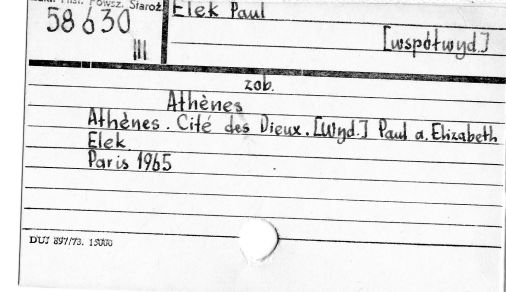 Powsz. Staroż.
58630
III
Elek Paul
[współwyd.]
zob.
Athènes
Athènes. Cité des Dieux. [Wyd.] Paul a. Elizabeth
Elek
Paris 1965
DUJ 897/73. 15000